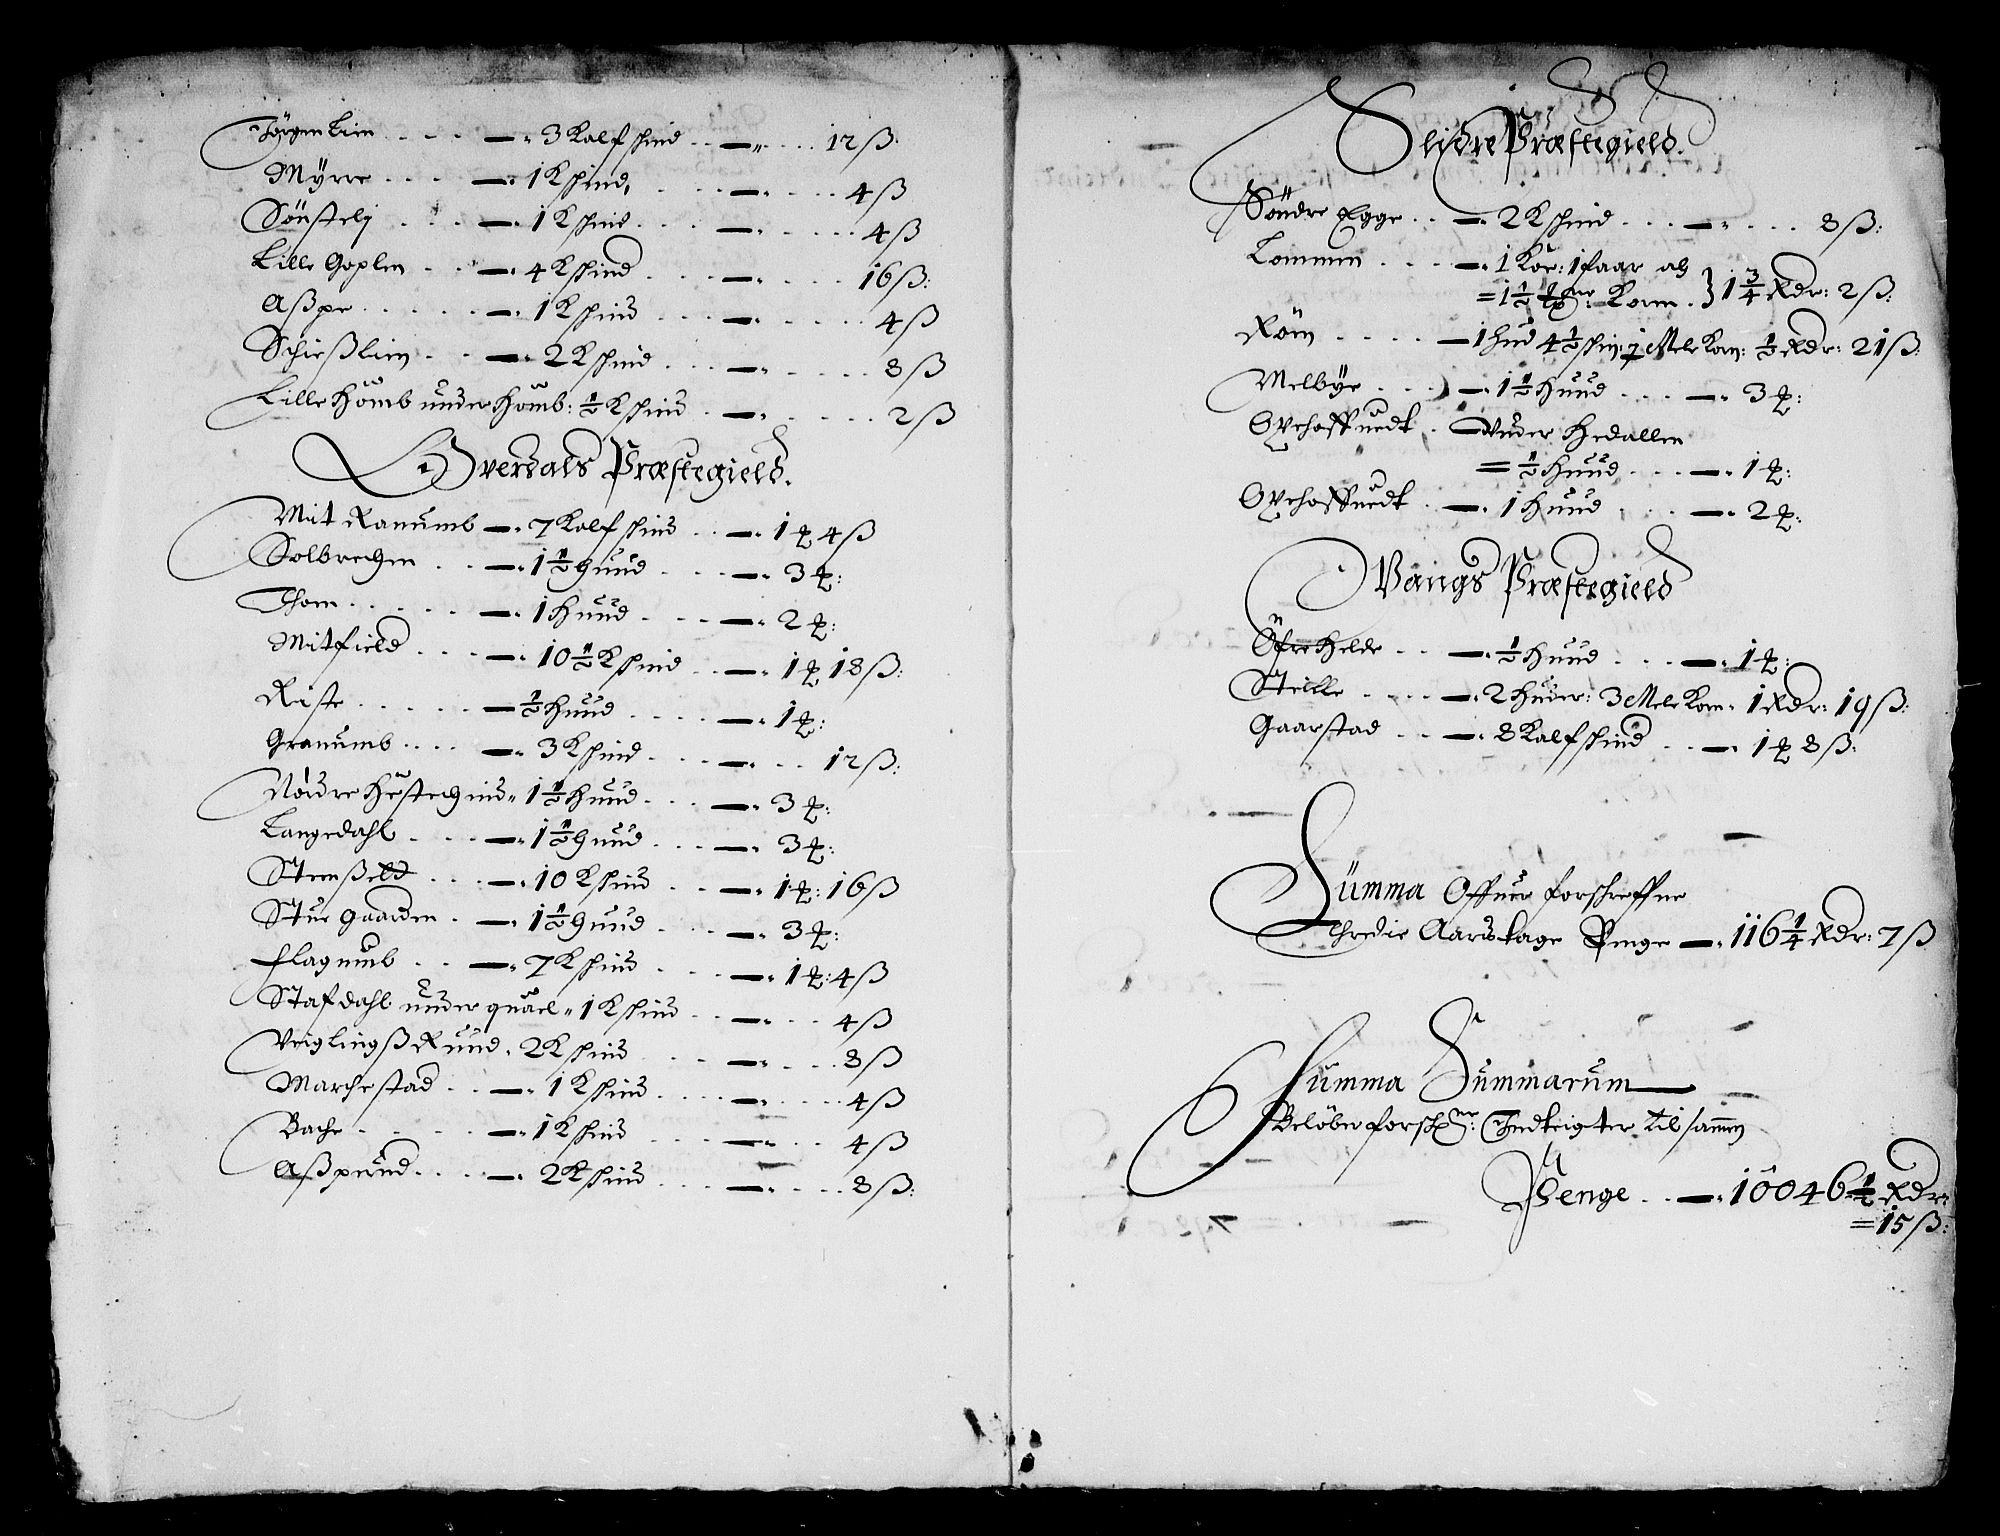 Jörgen Lien - 3 Kalfskind - 12 ß:
Myrre - 1 Kskind, - 4 ß
Sönstelj - 1 Kskind - 4 ß
Lille Goplen - 4 Kskind - 16 ß:
Aßpe - 1 Kskind - 4 ß
Schießlien - 2 Kskind - 8 ß
Lille Hömb under Hömb: ½ Kskind - 2 ß
Overdals Præstegield.
Mit Ranumb - 7 Kalfskind - 1 ꝑ 4 ß
Solbrechen - 1½ Huud - 3 ꝑ:
Thom - 1 Huud - 2 ꝑ:
Mitfield - 10½ Kskind - 1 ꝑ 18 ß:
Riste - ½ Huud - 1 ꝑ:
Granumb - 3 Kskind - 12 ß:
Nördre Höstechind - 1½ Huud - 3 ꝑ:
Langedahl - 1½ Huud - 3 ꝑ:
Stenßeld - 10 Kskind - 1 ꝑ: 16 ß
Stue Gaarden - 1½ Huud - 3 ꝑ:
Flagumb - 7 Kskind - 1 ꝑ: 4 ß
Stafdahl under quäel - 1 Kskind - 4 ß
Veiglingß Ruud - 2 Kskind - 8 ß
Marchestad - 1 Kskind - 4 ß
Bache - 1 Kskind - 4 ß
Aßpeund - 2 Kskind - 8 ß:
Slidre Præstegield.
Söndre Egge - 2 Kskind - 8 ß:
Lommen - 1 Koe: 1 faar oc
= 1½ Korn } 1¾ Rdr: 2 ß:
Röm - 1 hud 4½ skin: 7 Mele Korn: ½ Rdr: 21 ß:
Melbye - 1½ Huud - 3 ꝑ:
Opehoffuedt - Under Hedallen
= ½ Huud - 1 ꝑ:
Opehoffuedt - 1 Huud - 2 ꝑ:
Vangs Præstegield
Öfre Helde - ½ Huud - 1 ꝑ:
Steille - 2 Huder: 3 Mele Korn - 1 Rdr: 19 ß:
Gaarstad - 8 Kalfskind - 1 ꝑ 8 ß:
Summa Offuer forschreffne
Thredie Aars tage Penge - 116¼ Rdr: 7 ß
Summa Summarum
Belöber forschne: Indteigter tilsammen
Penge - 10046½ Rdr:
= 15 ß: